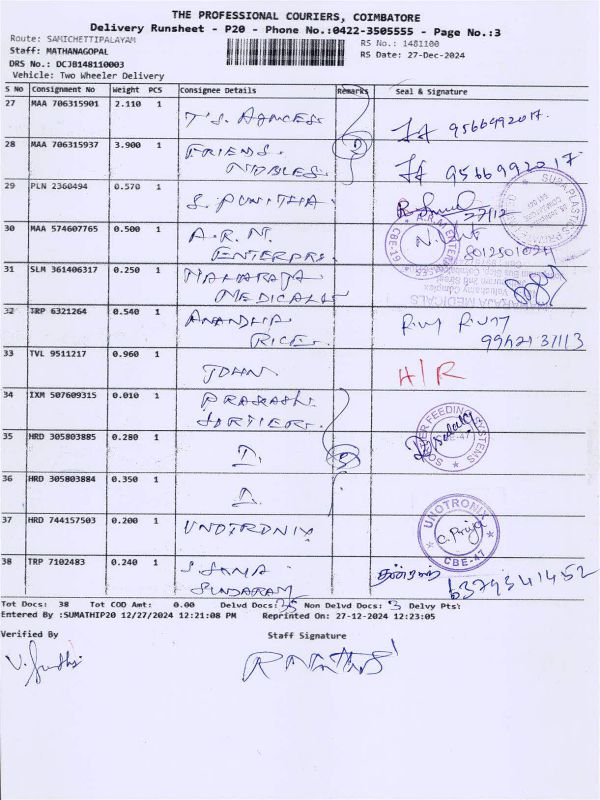 THE PROFESSIONAL COURIERS, COIMBATORE
Delivery Runsheet - P20 - Phone No.:0422-3505555 - Page No.:3
Route: SAMICHETTIPALAYAM
RS No.: 1481100
Staff: MATHANAGOPAL
RS Date: 27-Dec-2024
DRS No.: DCJB148110003
Vehicle: Two Wheeler Delivery
S No Consignment No Weight PCS Consignee Details Remarks Seal & Signature
27 MAA 706315901 2.110 1 T'S. 9566992017.
28 MAA 706315937 3.900 1 FRIENDS. 9566992017
29 PLN 2360494 0.570 1 S. PUNITHA 27/12
30 MAA 574607765 0.500 1 A.R.N.
ENTERPRS.
31 SLM 361406317 0.250 1 MAHARAJA
MEDICALS
MAHARAJA MEDICALS
32 TRP 6321264 0.540 1 ANANDHA
RICE.
33 TVL 9511217 0.960 1 JOHN. H/R
34 IXM 507609315 0.010 1 PRAKASH.
35 HRD 305803885 0.280 1 D.
FEEDING SYSTEMS
CBE-47
36 HRD 305803884 0.350 1 D.
37 HRD 744157503 0.200 1 UNOTRONIX
UNOTRONIX
C. Priya
CBE-47
38 TRP 7102483 0.240 1 6379341452
SUNDARAM
Tot Docs: 38 Tot COD Amt: 0.00 Delvd Docs: 35 Non Delvd Docs: 3 Delvy Pts:
Entered By :SUMATHIP20 12/27/2024 12:21:08 PM Reprinted On: 27-12-2024 12:23:05
Verified By Staff Signature